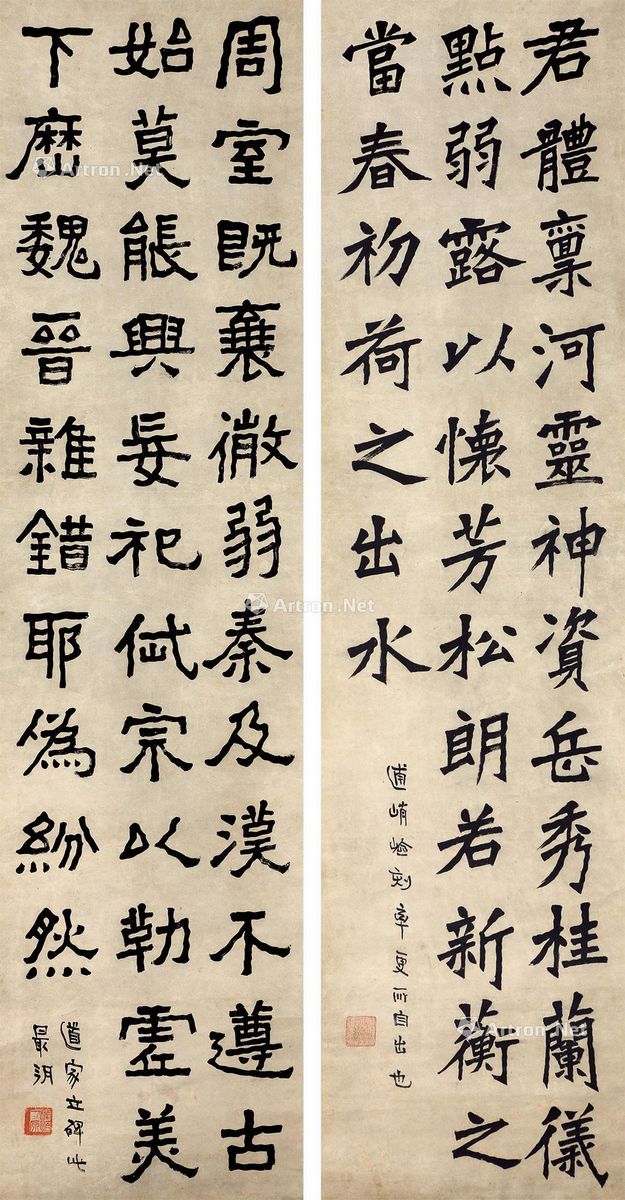 君體稟河靈神資岳秀桂蘭儀
點弱露以懷芳松朗若新蘅之
當春初荷之出水
峭刻率更所自出也
周室既微弱秦及漢不遵古
始莫能興祀宗以勒虛美
下魏晉雜錯耶偽紛然
道家立碑此
最
Artron.Net
Artron.Net
Artron.Net
Artron.Net
Artron.Net